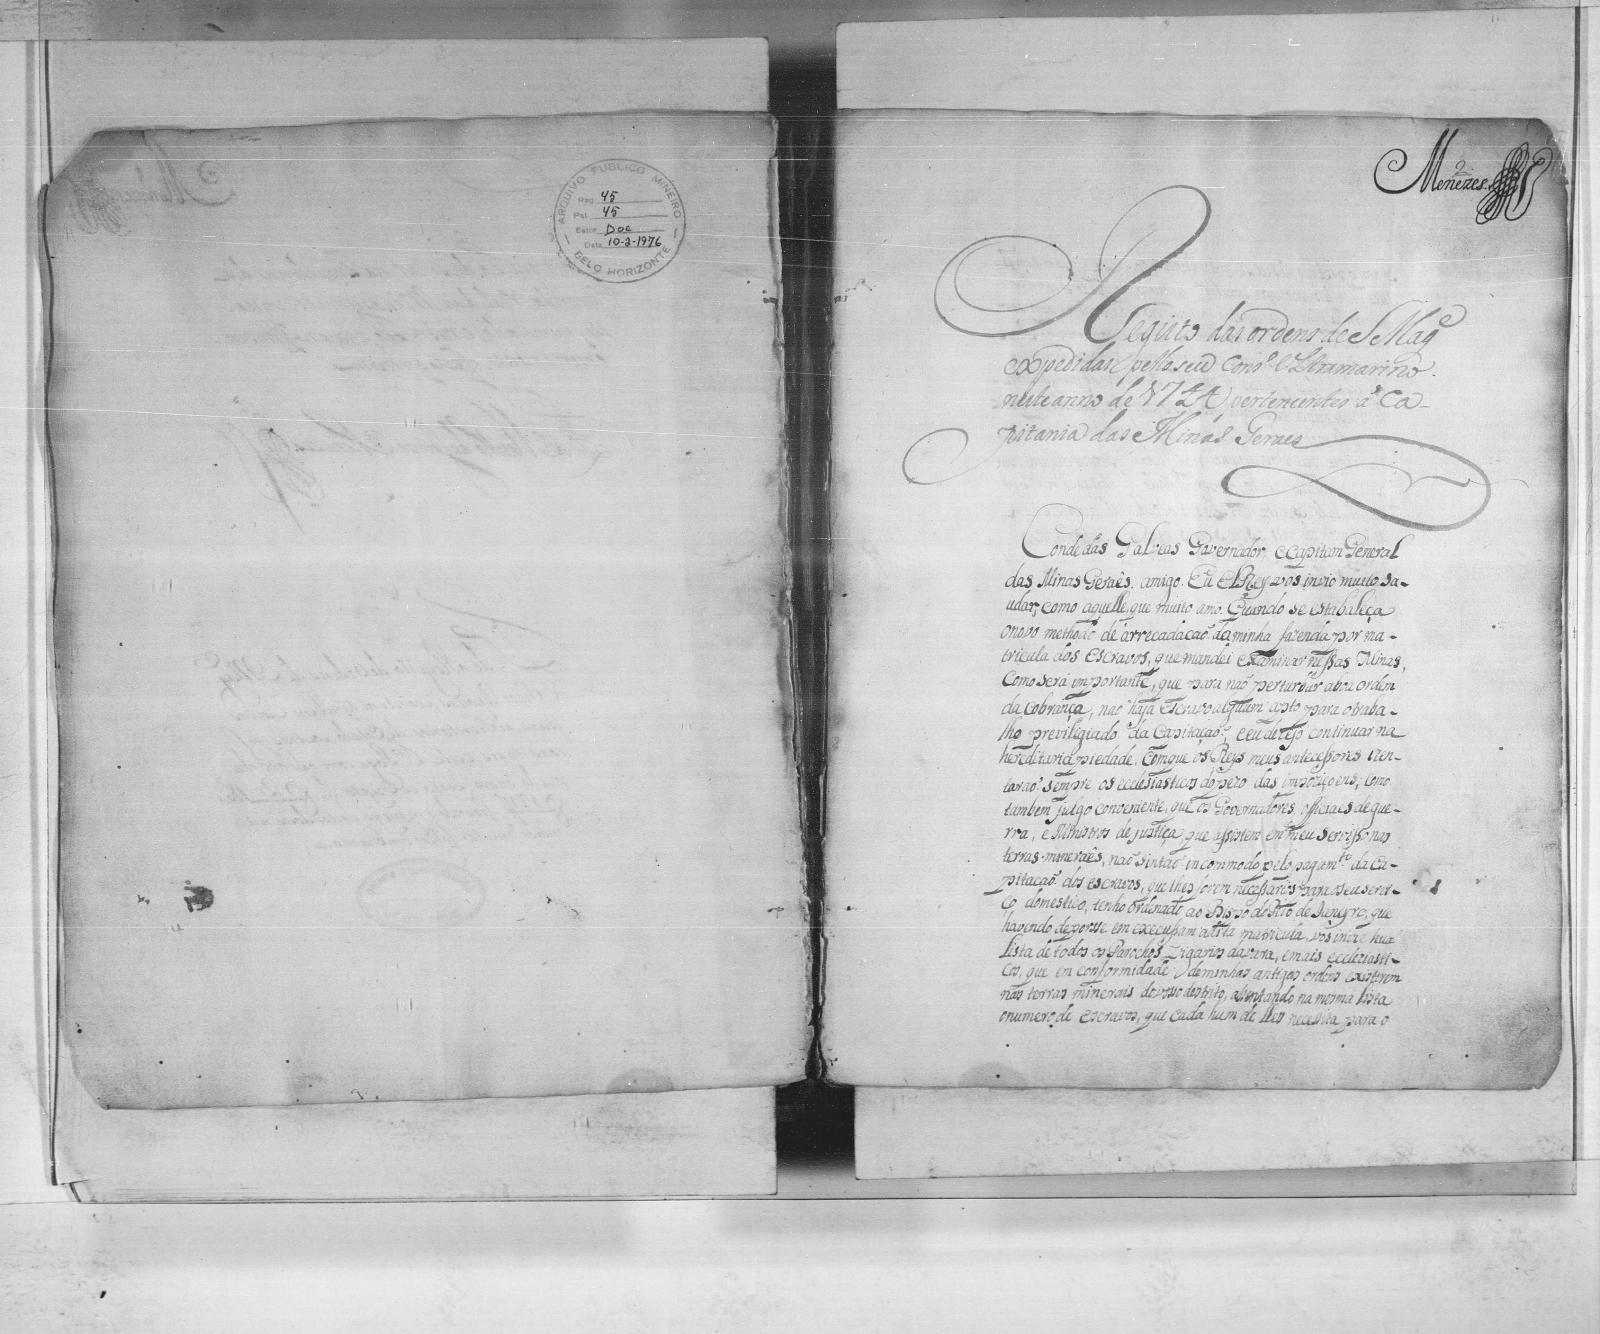 ARQUIVO PUBLICO MINEIRO
Reg. 45
Pat. 45
Estan. Doc
Data 10-2-1976
BELO HORIZONTE
2
Menezes
Registo das ordens de S Magᵉ
expedidas pello seu Consº Ultramarino
neste anno de 1724 pertencentes á Ca-
pitania das Minas Geraes
Conde das Galveas Governador, e Capitam General
das Minas Geraês, amigo. Eu ElRey vos invio muito sa-
udar, como aquelle, que muito amo. Quando se estabaleça
o novo methodo de arrecadacaõ da minha fazenda por ma-
tricula dos escravos, que mandei examinar nessas Minas,
Como será importante, que para naõ perturbar a boa ordem
da Cobrança, naõ haja escravo algum apto para o traba-
lho previligiado da Capitaçaõ, e eu dezejo continuar na
hereditaria piedade, com que os Reys meus antecessores izen-
taraõ sempre os ecclesiasticos do pezo das impoziçoens, como
tambem julgo conveniente, que os Governadores, officiaes de gue-
rra, e Ministros de justiça, que assistem em meu serviço nas
terras mineraês, naõ sintaõ incommodo pelo pagamᵗᵒ da Ca-
pitacaõ dos escravos, que lhes forem necessarios para o seu servi-
ço domestico, tenho ordenado ao Bispo do Rio de Janeyro, que
havendo de porse em execussam a dita matricula, vos invie hua
lista de todos os Parochos, Vigarios da vara, e mais ecclesiasti-
cos, que em conformidade de minhas antigas ordens existirem
nas terras minerais do vosso destrito, aluntando na mesma lista
o numero de escravos, que cada hum delles necessita para o